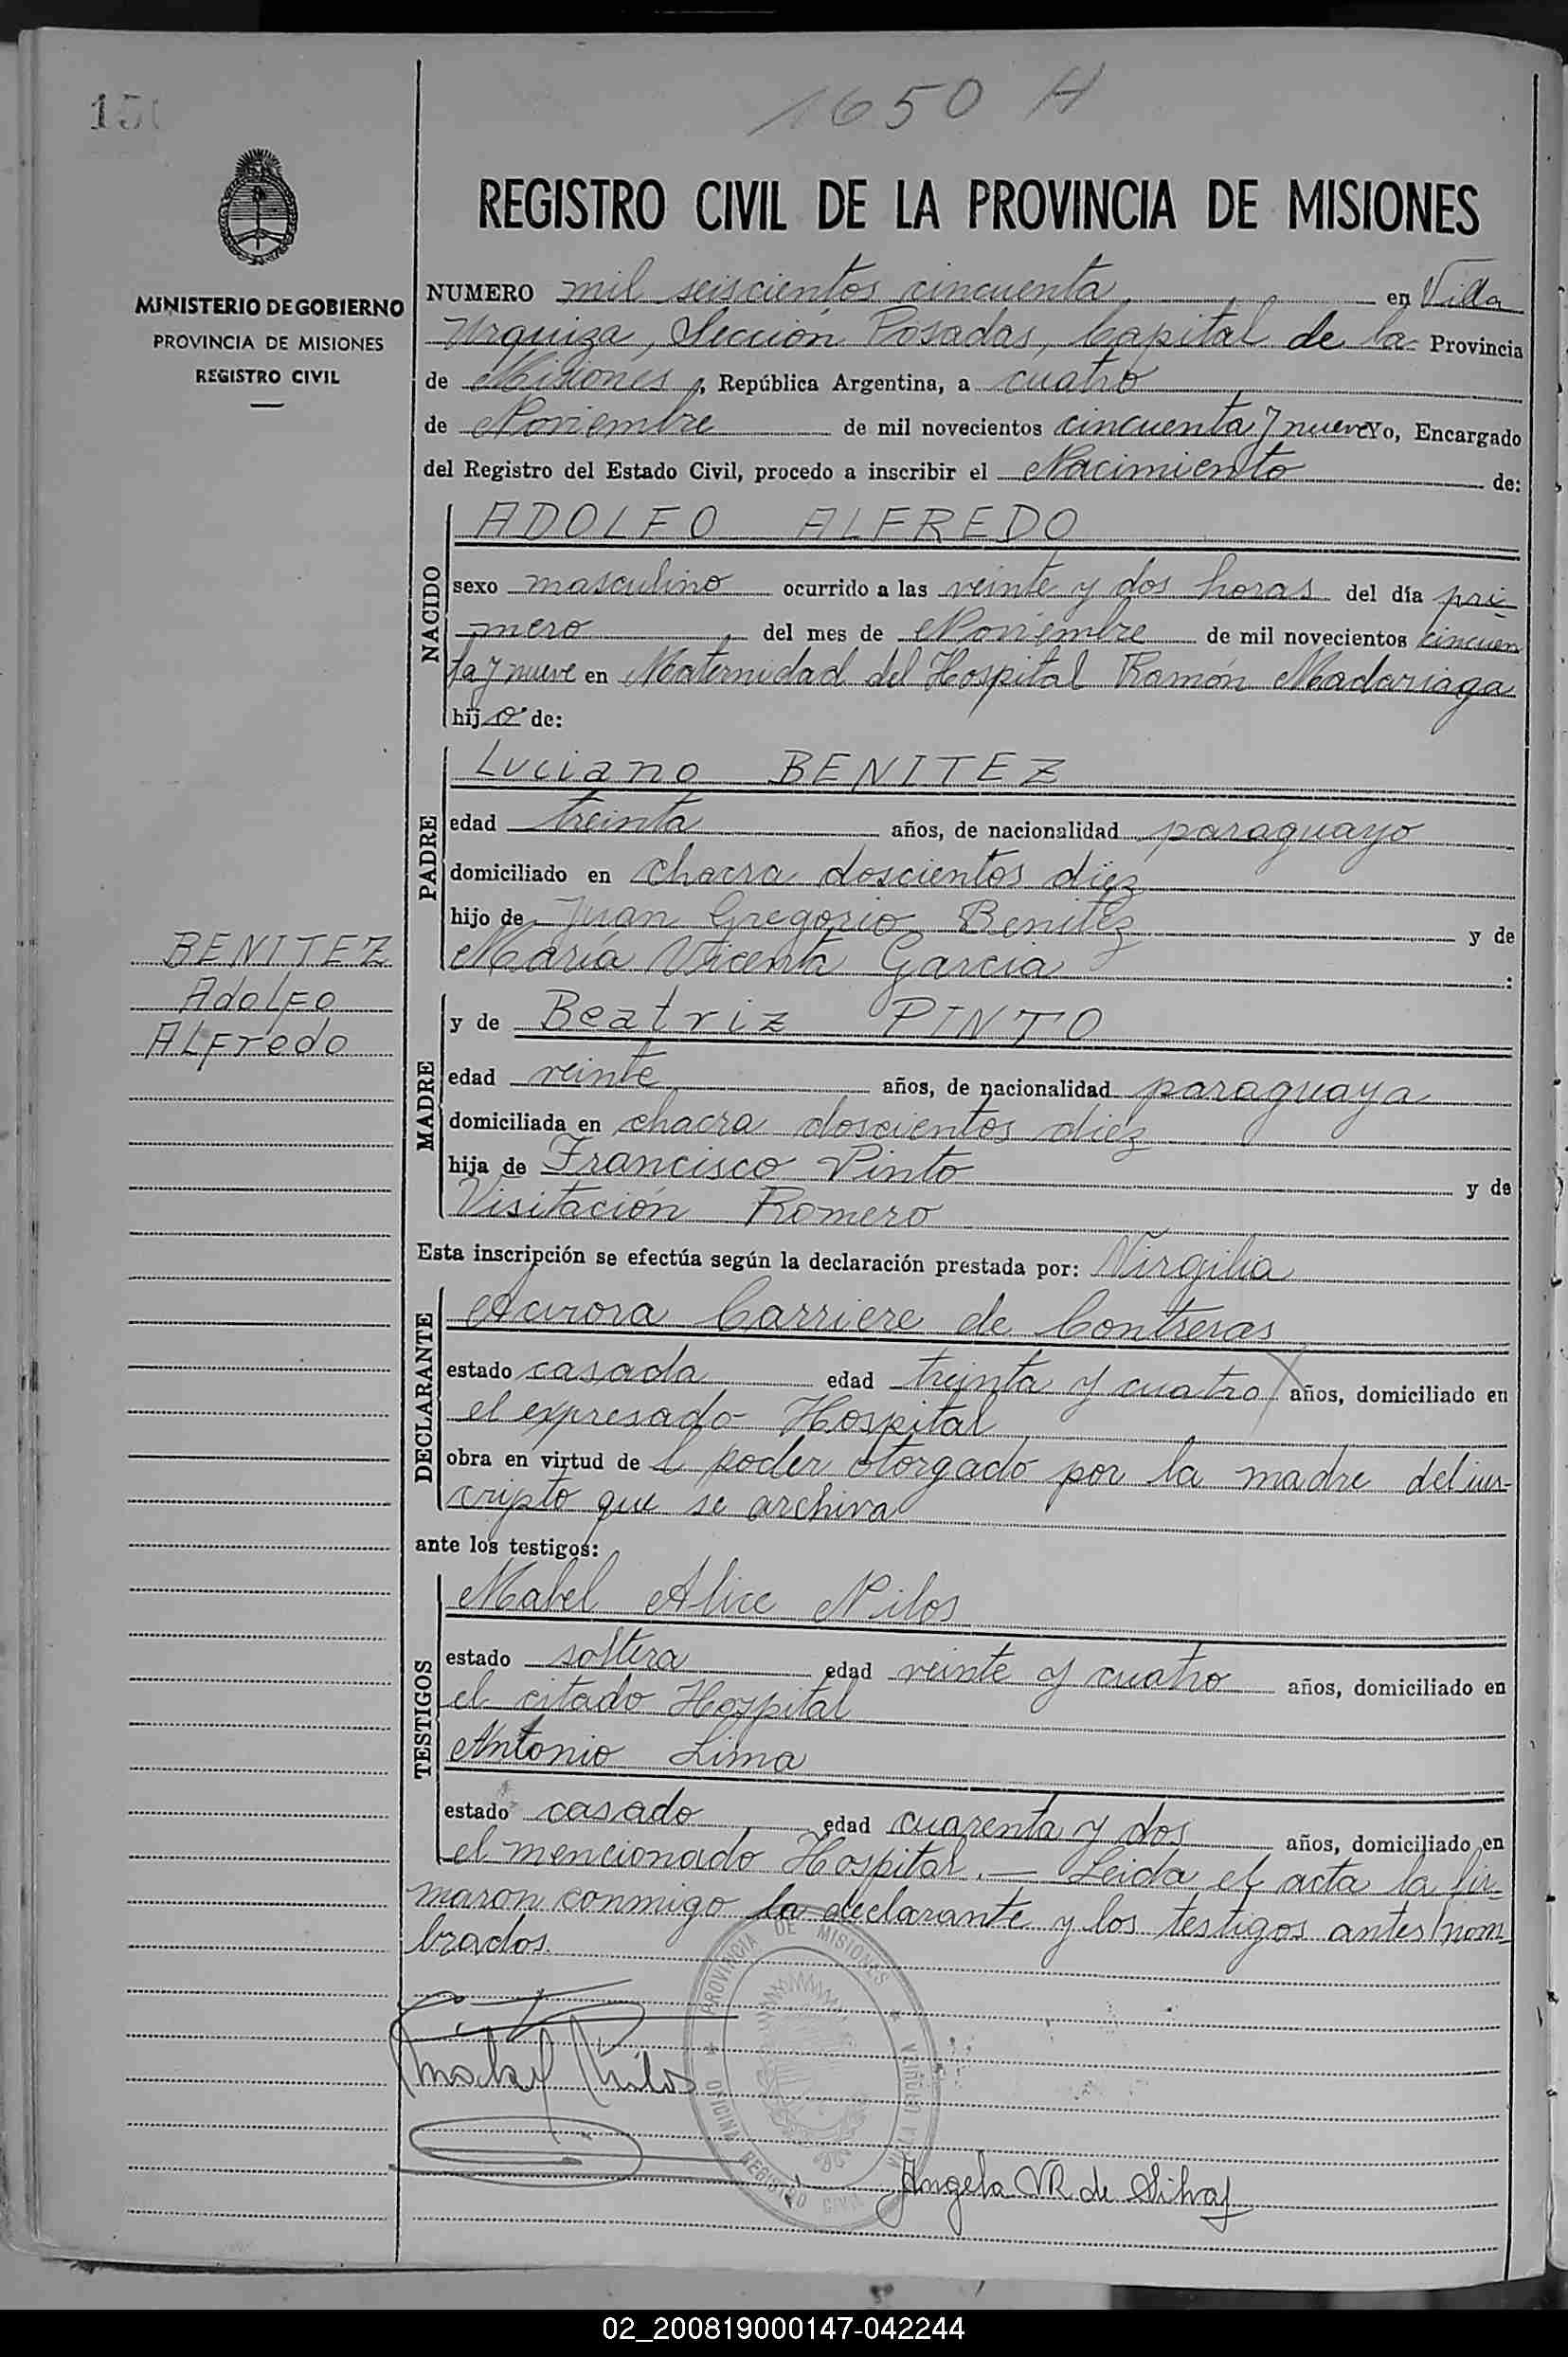 150
1650 H
MINISTERIO DE GOBIERNO
PROVINCIA DE MISIONES
REGISTRO CIVIL
REGISTRO CIVIL DE LA PROVINCIA DE MISIONES
NUMERO mil seiscientos cincuenta, en Villa
Urquiza, Sección Posadas, Capital de la Provincia
de Misiones, República Argentina, a cuatro
de Noviembre de mil novecientos cincuenta y nueve Yo, Encargado
del Registro del Estado Civil, procedo a inscribir el Nacimiento de:
NACIDO
ADOLFO ALFREDO
sexo masculino ocurrido a las veinte y dos horas del día pri-
mero, del mes de Noviembre de mil novecientos cincuen
ta y nueve en Maternidad del Hospital Ramón Madariaga
hijo de:
PADRE
Luciano BENITEZ
edad treinta años, de nacionalidad paraguayo
domiciliado en chacra doscientos diez
hijo de Juan Gregorio Benitez y de
María Vicenta Garcia :
BENITEZ
Adolfo
ALFredo
MADRE
y de Beatriz PINTO
edad veinte años, de nacionalidad paraguaya
domiciliada en chacra doscientos diez
hija de Francisco Pinto y de
Visitación Romero
Esta inscripción se efectúa según la declaración prestada por: Virgilia
DECLARANTE
Aurora Carriere de Contreras
estado casada edad treinta y cuatro años, domiciliado en
el expresado Hospital
obra en virtud de l poder otorgado por la madre del ins-
cripto que se archiva
ante los testigos:
TESTIGOS
Mabel Alice Nilos
estado soltera edad veinte y cuatro años, domiciliado en
el citado Hospital
Antonio Lima
estado casado edad cuarenta y dos años, domiciliado en
el mencionado Hospital.— Leida el acta la fir-
maron conmigo la declarante y los testigos antes nom-
brados.
PROVINCIA DE MISIONES
OFICINA REGISTRO CIVIL
VILLA URQUIZA
Mabel Nilos
Angela VR de Silva
02_200819000147-042244